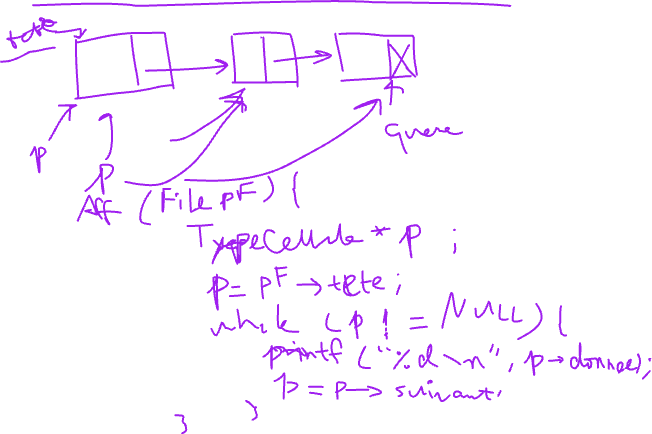 tete
p
queue
p
Aff (File pF) {
TypeCellule * p ;
p = pF → tete ;
while (p != NULL) {
printf ("%d\n", p→donnee);
p = p → suivant;
} }